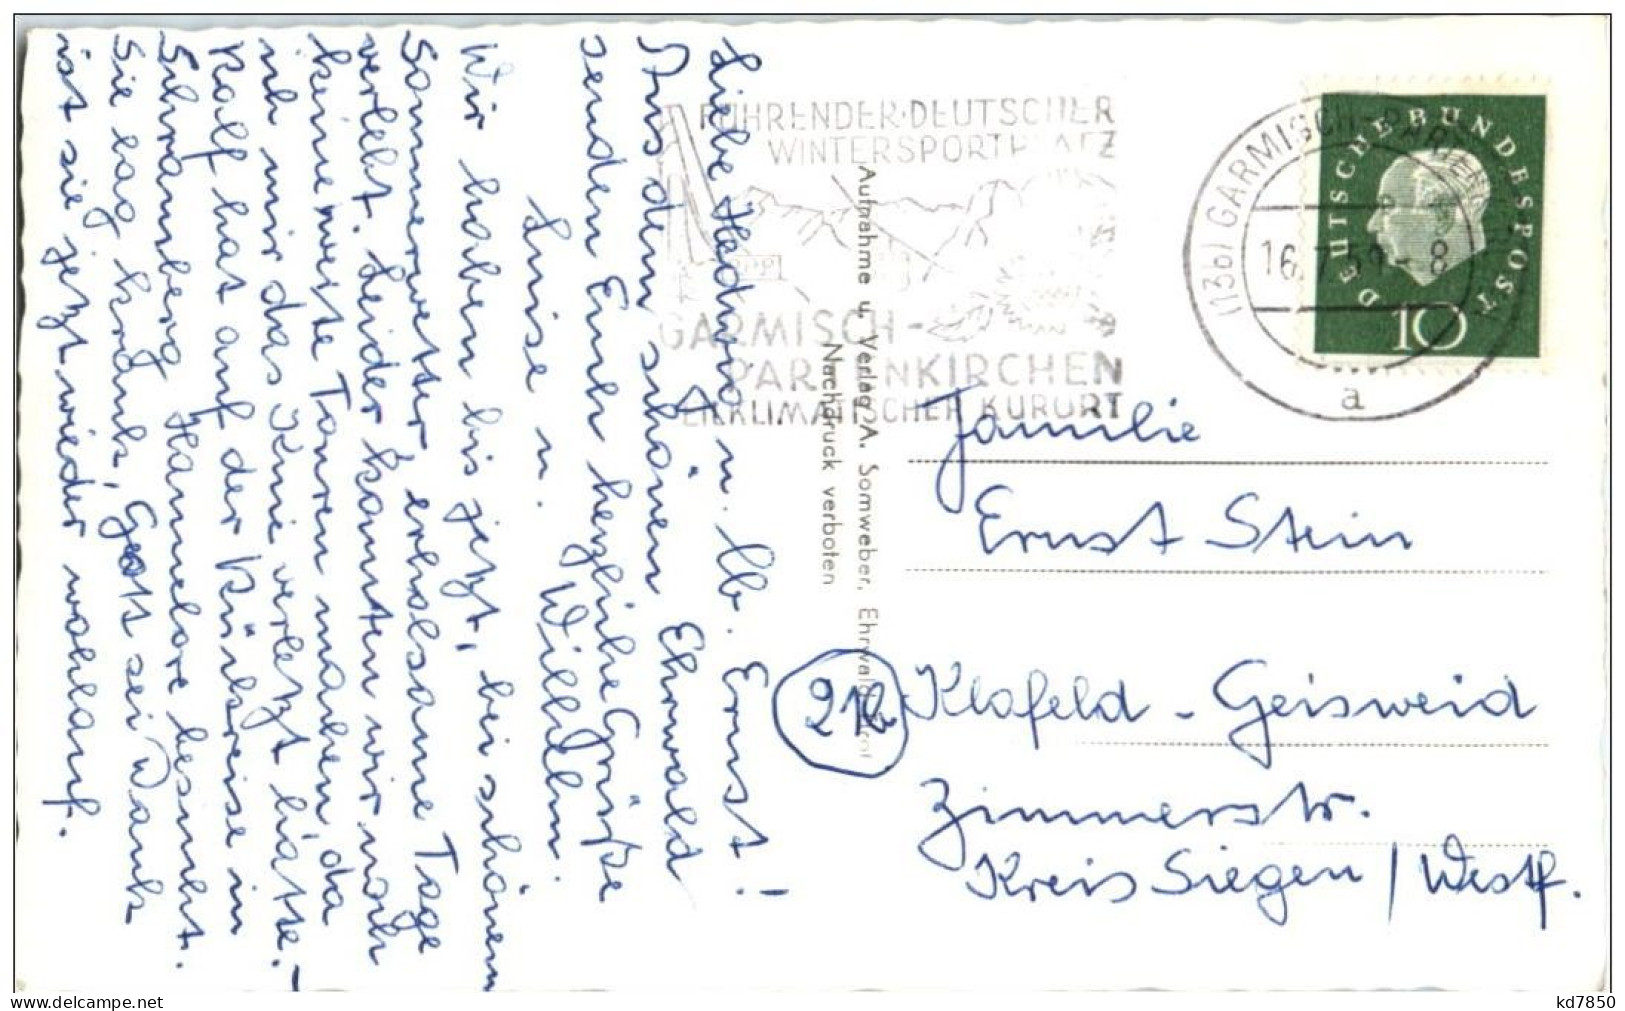 Liebe Hedwig u. lb. Ernst!
Aus dem schönen Ehrwald
senden Euch herzliche Grüße
Luise u. Wilhelm.
Wir haben bis jetzt, bei schönem
Sommerwetter, erholsame Tage
verlebt. Leider konnten wir noch
keine weite Touren machen, da
ich mir das Knie verletzt hatte.-
Rolf hat auf der Rückreise in
Schramberg Hannelore besucht.
Sie lag krank, Gott sei Dank
ist sie jetzt wieder wohlauf.
FÜHRENDER·DEUTSCHER
WINTERSPORTPLATZ
GARMISCH-
PARTENKIRCHEN
HEILKLIMATISCHER KURORT
Aufnahme u. Verlag A. Somweber, Ehrwald, Tirol
Nachdruck verboten
(13b) GARMISCH-PARTENKIRCHEN
16.7.59-8
a
DEUTSCHE BUNDESPOST
10
Familie
Ernst Stein
21b Klafeld-Geisweid
Zimmerstr.
Kreis Siegen / Westf.
delcampe.net
kd7850